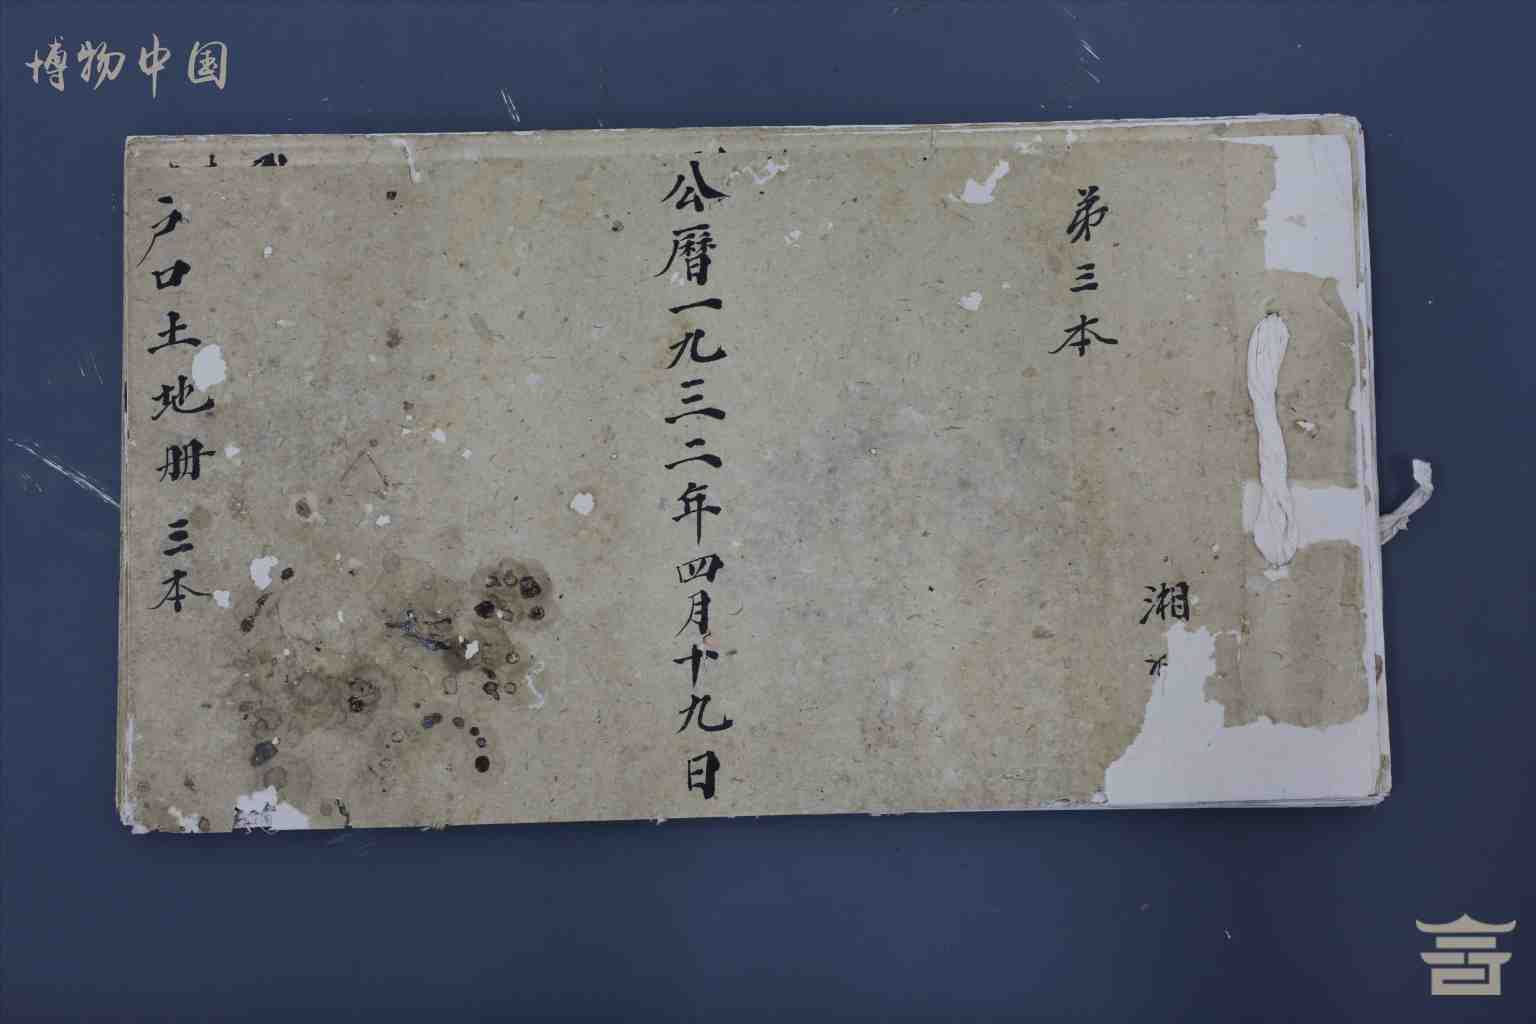 博物中国
弟三本
湘
公曆一九三二年四月十九日
户口土地册 三本